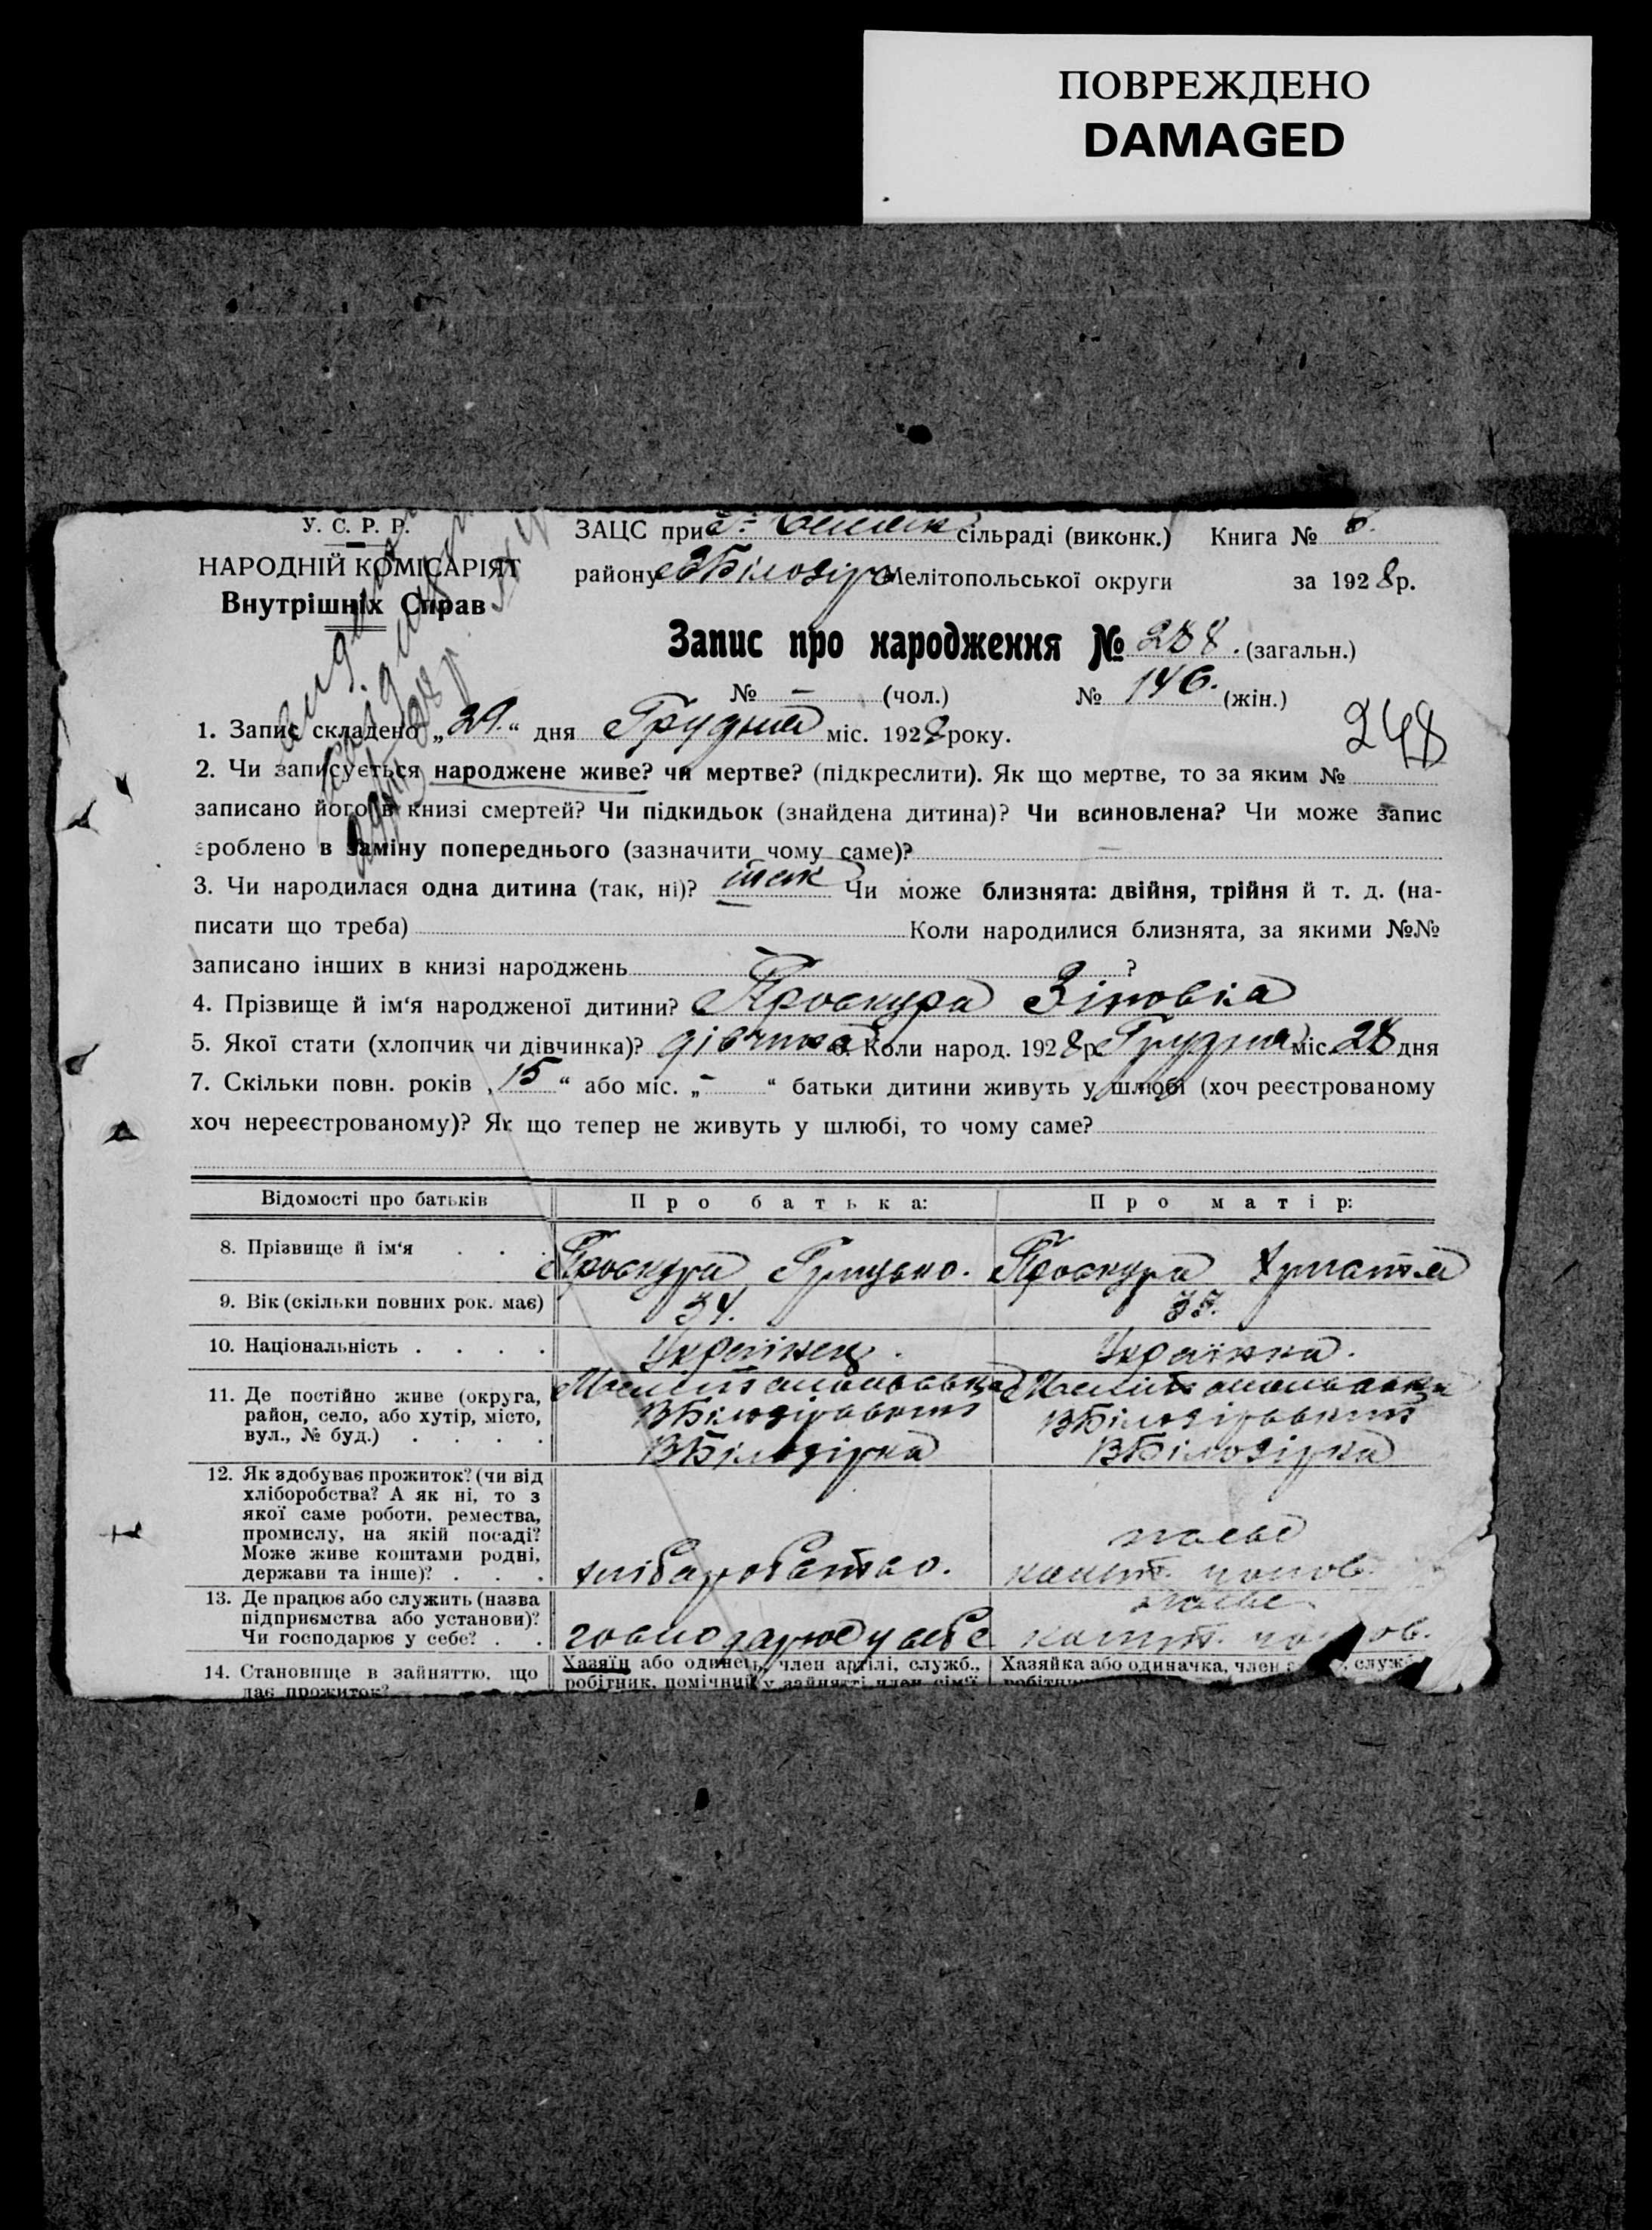 ПОВРЕЖДЕНО
DAMAGED
У. С. Р. Р.
НАРОДНІЙ КОМІСАРІЯТ
Внутрішніх Справ
ЗАЦС при сільраді (виконк.) Книга № 6.
району ВБілозір Мелітопольської округи за 1928 р.
Запис про народження № 288. (загальн.)
№ – (чол.) № 146. (жін.)
248
1. Запис складено „29.“ дня Грудня міс. 1928 року.
2. Чи записується народжене живе? чи мертве? (підкреслити). Як що мертве, то за яким №
записано його в книзі смертей? Чи підкидьок (знайдена дитина)? Чи всиновлена? Чи може запис
зроблено в заміну попереднього (зазначити чому саме)? —
3. Чи народилася одна дитина (так, ні)? так Чи може близнята: двійня, трійня й т. д. (на-
писати що треба) Коли народилися близнята, за якими №№
записано інших в книзі народжень ?
4. Прізвище й ім‘я народженої дитини? Проскура Зіновіа
5. Якої стати (хлопчик чи дівчинка)? дівчина 6. Коли народ. 1928 р. Грудня міс. 28 дня
7. Скільки повн. років „15“ або міс. „–“ батьки дитини живуть у шлюбі (хоч реєстрованому
хоч нереєстрованому)? Як що тепер не живуть у шлюбі, то чому саме?
Відомості про батьків Про батька: Про матір:
8. Прізвище й ім‘я . . . Проскура Грицько. Проскура
9. Вік (скільки повних рок. має) 34.
10. Національність . . . . Українец. Українка.
11. Де постійно живе (округа,
район, село, або хутір, місто,
вул., № буд.) . . . .
Мелітопольська
ВБілозірський
ВБілозірка
Мелітопольська
ВБілозірський
ВБілозірка
12. Як здобуває прожиток? (чи від
хліборобства? А як ні, то з
якої саме роботи, ремества,
промислу, на якій посаді?
Може живе коштами родні,
держави та інше)? . . .
хліборобство.
13. Де працює або служить (назва
підприємства або установи)?
Чи господарює у себе? . .
господарює у себе
14. Становище в зайняттю, що
дає прожиток?
Хазяїн або одинець, член артілі, служб.,
робітник, помічник у зайнятті член сім'ї
Хазяйка або одиначка, член служб